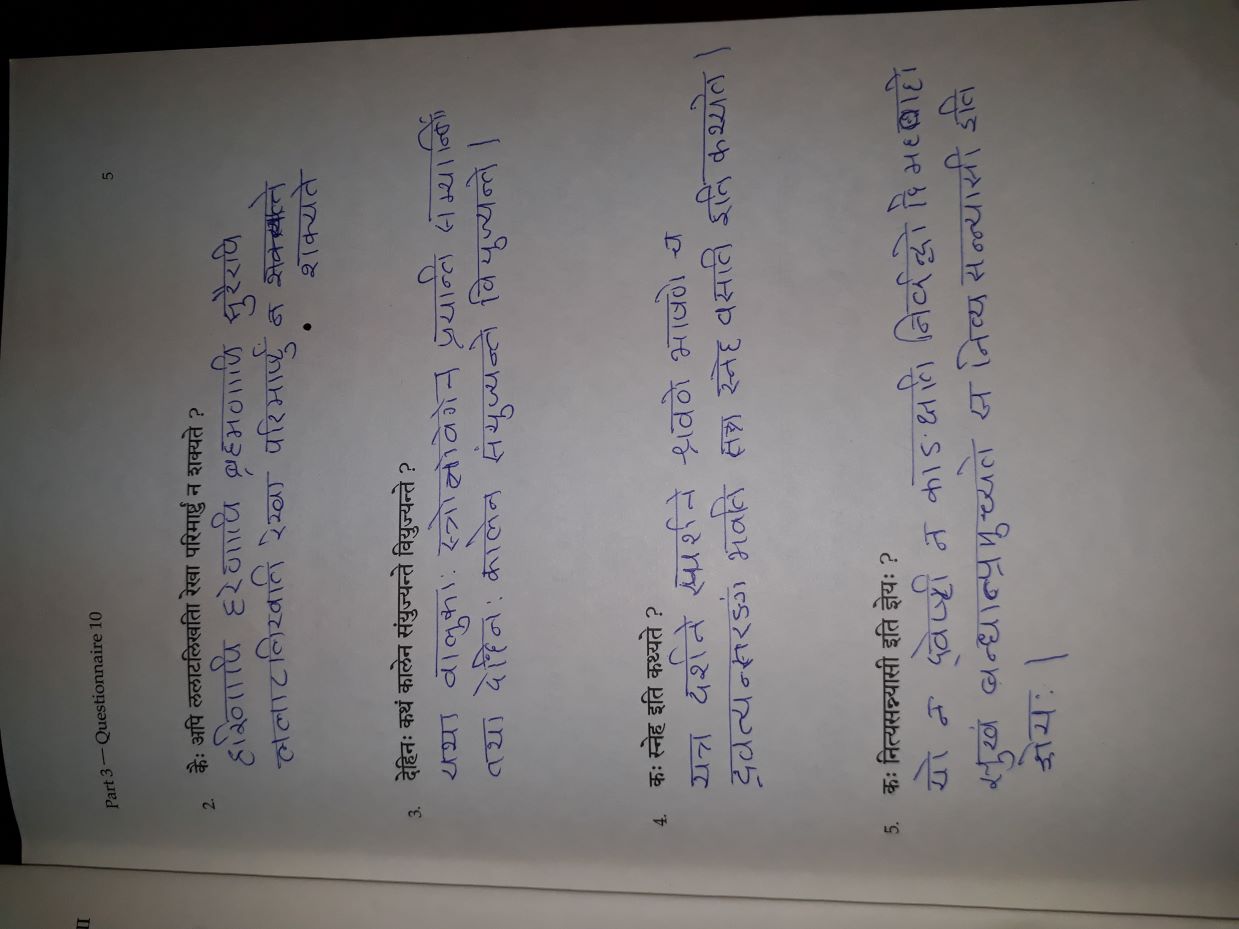 II
Part 3 — Questionnaire 10
5
2. कैः अपि ललाटलिखिता रेखा परिमार्ष्टुं न शक्यते ?
हरिणापि हरेणापि ब्रह्मणापि सुरैरपि
ललाटलिखिता रेखा परिमार्ष्टुं न
शक्यते
3. देहिनः कथं कालेन संयुज्यन्ते वियुज्यन्ते ?
यथा वालुकाः प्रयान्ति
तथा देहिनः कालेन संयुज्यन्ते वियुज्यन्ते |
4. कः स्नेह इति कथ्यते ?
यत्र दर्शने स्पर्शने श्रवणे भाषणे च
भवति स्नेह वसति इति कथ्यते |
5. कः नित्यसन्न्यासी इति ज्ञेयः ?
यो न द्वेष्टी न काङक्षति निर्वन्द्वो हि
सुखं बन्धान्प्रमुच्यते स नित्य सन्न्यासी इति
ज्ञेयः |